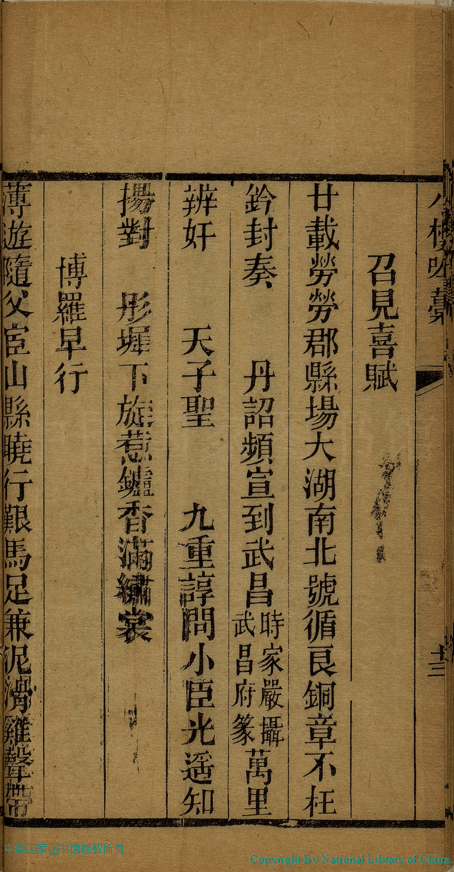 吟藁
十三
召見喜賦
廿載勞勞郡縣場大湖南北號循良銅章不枉
鈐封奏 丹詔頻宣到武昌時家嚴攝武昌府篆萬里
辨奸 天子聖 九重諄問小臣光遥知
揚對 彤墀下旋惹鑪香滿繡裳
博羅早行
薄遊隨父宦山縣曉行艱馬足兼泥滑雞聲帶
Copyright By National Library of China